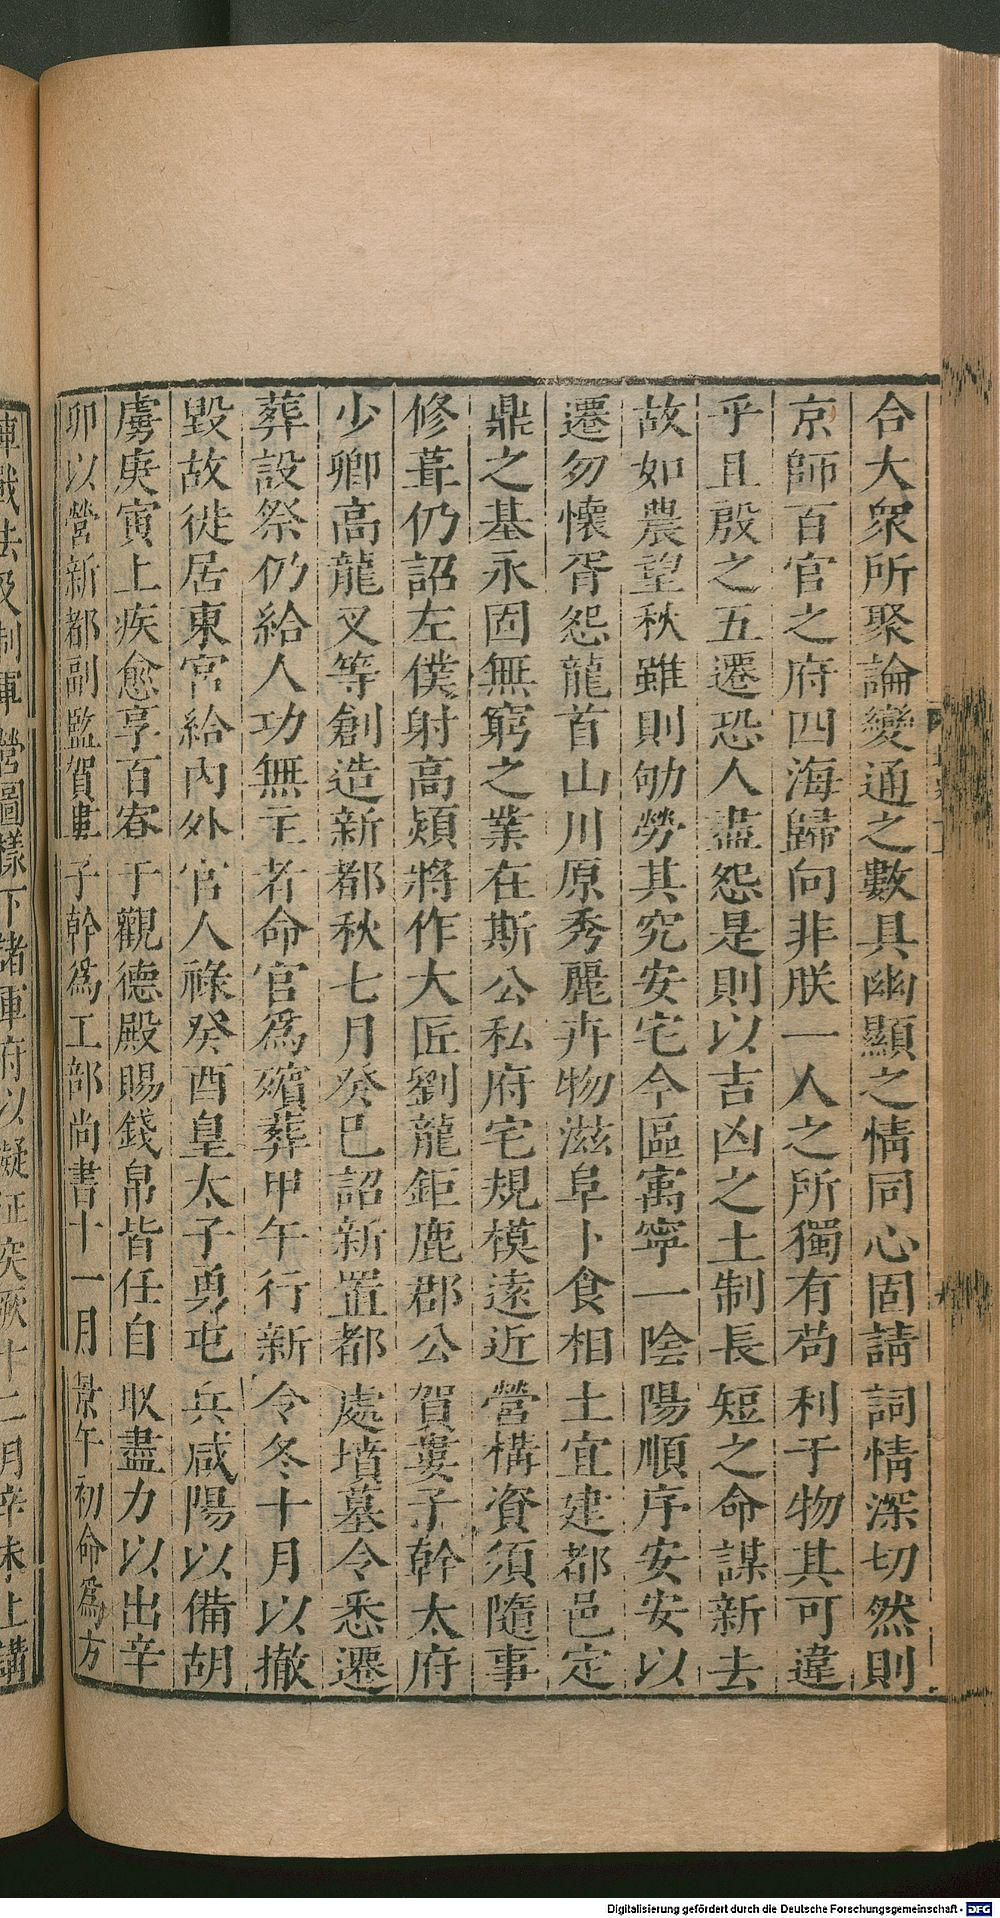 合大衆所聚論變通之數具幽顯之情同心固請詞情深切然則
京師百官之府四海歸向非朕一人之所獨有苟利于物其可違
乎且殷之五遷恐人盡怨是則以吉凶之土制長短之命謀新去
故如農望秋雖則劬勞其究安宅今區寓寧一陰陽順序安安以
遷勿懷胥怨龍首山川原秀麗卉物滋阜卜食相土宜建都邑定
鼎之基永固無窮之業在斯公私府宅規模遠近營構資須隨事
修葺仍詔左僕射高熲將作大匠劉龍鉅鹿郡公賀婁子幹太府
少卿高龍叉等創造新都秋七月癸巳詔新置都處墳墓令悉遷
葬設祭仍給人功無主者命官爲殯葬甲午行新令冬十月以撤
毀故徙居東宮給內外官人祿癸酉皇太子勇屯兵咸陽以備胡
虜庚寅上疾愈享百寮于觀德殿賜錢帛皆任自取盡力以出辛
卯以營新都副監賀婁子幹爲工部尚書十一月景午初命爲方
陣戰法及制軍營圖樣下諸軍府以擬征突厥十二月辛未上講
Digitalisierung gefördert durch die Deutsche Forschungsgemeinschaft - DFG